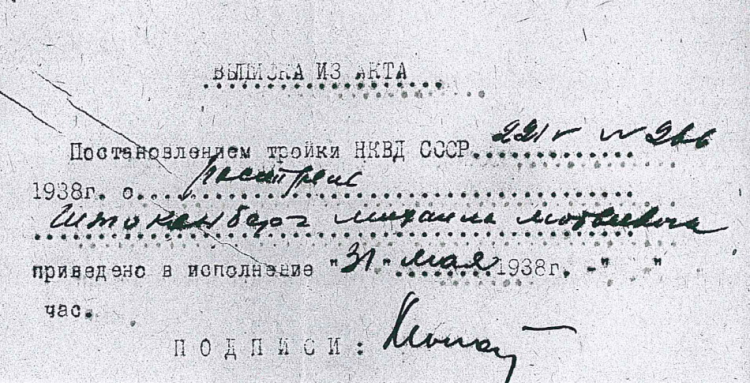 ВЫПИСКА ИЗ АКТА
Постановлением тройки НКВД СССР
1938г. о расстреле
Штокенберг Михаила Матвеевича
приведено в исполнение "31" мая 1938г. -" "
час.
ПОДПИСИ: